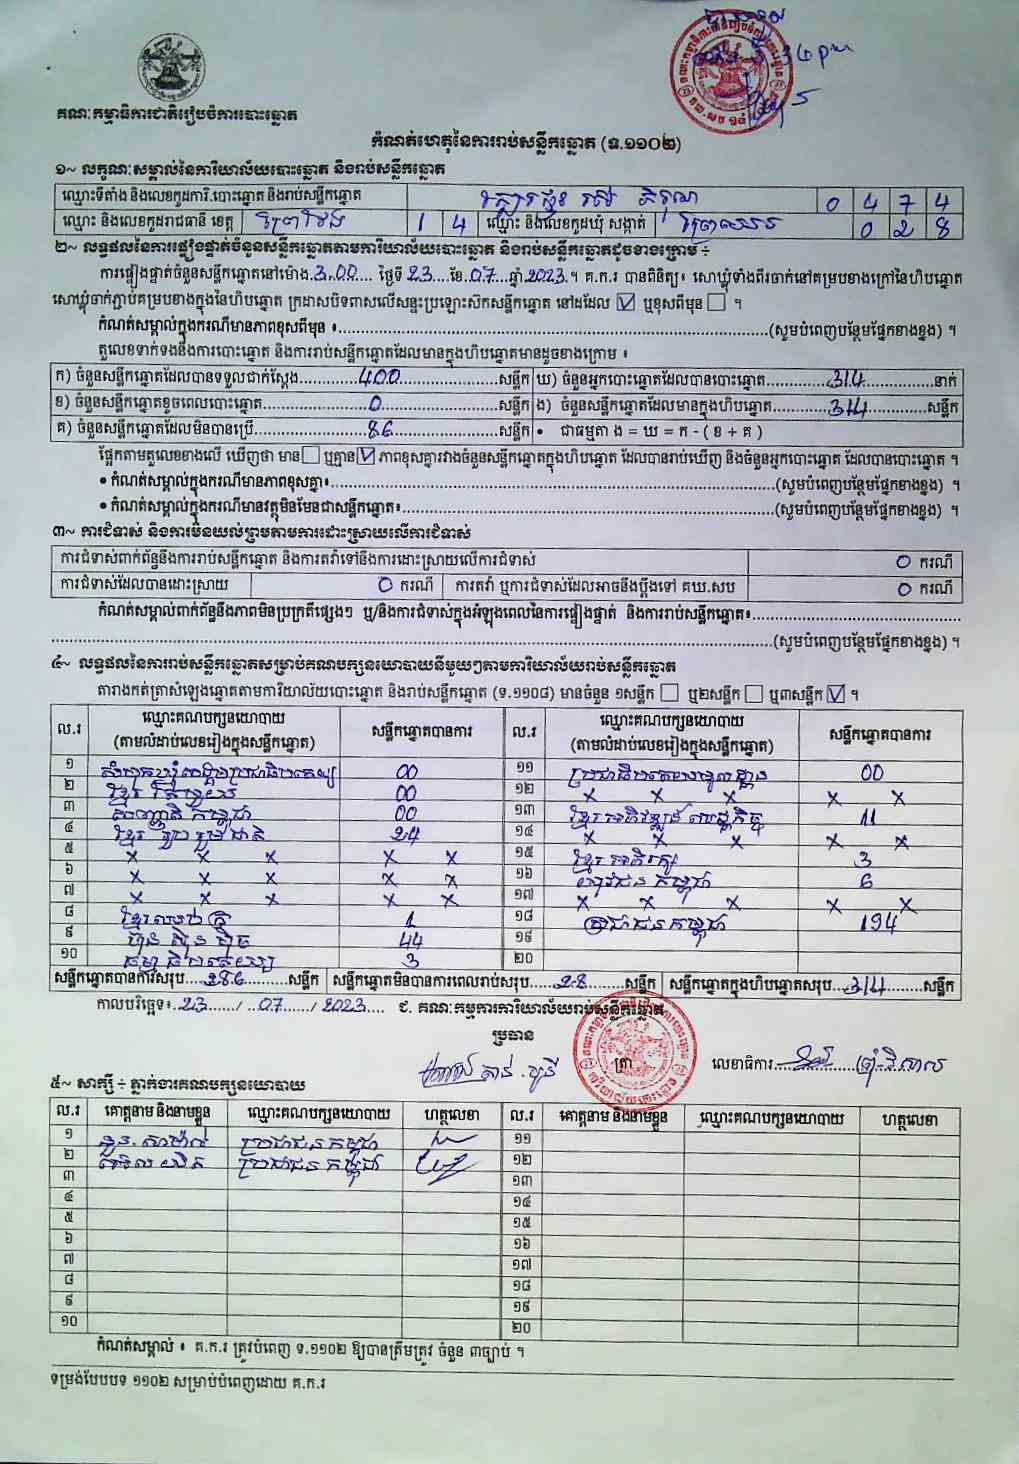 គណៈកម្មាធិការជាតិរៀបចំការបោះឆ្នោត
កំណត់ហេតុនៃការរាប់សន្លឹកឆ្នោត (ទ.១១០២)
១~ លក្ខណៈសម្គាល់នៃការិយាល័យបោះឆ្នោត និងរាប់សន្លឹកឆ្នោត
ឈ្មោះទីតាំង និងលេខកូដការិ.បោះឆ្នោត និងរាប់សន្លឹកឆ្នោត 0 4 7 4
ឈ្មោះ និងលេខកូដរាជធានី ខេត្ត ព្រៃវែង 1 4 ឈ្មោះ និងលេខកូដឃុំ សង្កាត់ 0 2 8
២~ លទ្ធផលនៃការផ្ទៀងផ្ទាត់ចំនួនសន្លឹកឆ្នោតតាមការិយាល័យបោះឆ្នោត និងរាប់សន្លឹកឆ្នោតដូចខាងក្រោម ÷
ការផ្ទៀងផ្ទាត់ចំនួនសន្លឹកឆ្នោតនៅម៉ោង.3.00.... ថ្ងៃទី 23....ខែ.07...ឆ្នាំ 2023.។ គ.ក.រ បានពិនិត្យ៖ សោឃ្លុំទាំងពីរចាក់នៅគម្របខាងក្រៅនៃហិបឆ្នោត
សោឃ្លុំចាក់ភ្ជាប់គម្របខាងក្នុងនៃហិបឆ្នោត ក្រដាសបិទពាសលើសន្ទះប្រឡោះសឹកសន្លឹកឆ្នោត នៅដដែល ☑ ឬខុសពីមុន ☐ ។
កំណត់សម្គាល់ក្នុងករណីមានភាពខុសពីមុន ៖..........(សូមបំពេញបន្ថែមផ្នែកខាងខ្នង) ។
តួលេខទាក់ទងនឹងការបោះឆ្នោត និងការរាប់សន្លឹកឆ្នោតដែលមានក្នុងហិបឆ្នោតមានដូចខាងក្រោម ៖
ក) ចំនួនសន្លឹកឆ្នោតដែលបានទទួលជាក់ស្តែង....400....សន្លឹក ឃ) ចំនួនអ្នកបោះឆ្នោតដែលបានបោះឆ្នោត....314....នាក់
ខ) ចំនួនសន្លឹកឆ្នោតខូចពេលបោះឆ្នោត....0....សន្លឹក ង) ចំនួនសន្លឹកឆ្នោតដែលមានក្នុងហិបឆ្នោត....314....សន្លឹក
គ) ចំនួនសន្លឹកឆ្នោតដែលមិនបានប្រើ....86....សន្លឹក • ជាធម្មតា ង = ឃ = ក - ( ខ + គ )
ផ្អែកតាមតួលេខខាងលើ ឃើញថា មាន ☐ ឬគ្មាន ☑ ភាពខុសគ្នារវាងចំនួនសន្លឹកឆ្នោតក្នុងហិបឆ្នោត ដែលបានរាប់ឃើញ និងចំនួនអ្នកបោះឆ្នោត ដែលបានបោះឆ្នោត ។
• កំណត់សម្គាល់ក្នុងករណីមានភាពខុសគ្នា៖..........(សូមបំពេញបន្ថែមផ្នែកខាងខ្នង) ។
• កំណត់សម្គាល់ក្នុងករណីមានវត្ថុមិនមែនជាសន្លឹកឆ្នោត៖..........(សូមបំពេញបន្ថែមផ្នែកខាងខ្នង) ។
៣~ ការជំទាស់ និងការមិនយល់ព្រមតាមការដោះស្រាយលើការជំទាស់
ការជំទាស់ពាក់ព័ន្ធនឹងការរាប់សន្លឹកឆ្នោត និងការតវ៉ាទៅនឹងការដោះស្រាយលើការជំទាស់ 0 ករណី
ការជំទាស់ដែលបានដោះស្រាយ 0 ករណី ការតវ៉ា ឬការជំទាស់ដែលអាចនឹងប្តឹងទៅ គឃ.សប 0 ករណី
កំណត់សម្គាល់ពាក់ព័ន្ធនឹងភាពមិនប្រក្រតីផ្សេងៗ ឬ/និងការជំទាស់ក្នុងអំឡុងពេលនៃការផ្ទៀងផ្ទាត់ និងការរាប់សន្លឹកឆ្នោត៖..........
..........(សូមបំពេញបន្ថែមផ្នែកខាងខ្នង) ។
៤~ លទ្ធផលនៃការរាប់សន្លឹកឆ្នោតសម្រាប់គណបក្សនយោបាយនីមួយៗតាមការិយាល័យរាប់សន្លឹកឆ្នោត
តារាងកត់ត្រាសំឡេងឆ្នោតតាមការិយាល័យបោះឆ្នោត និងរាប់សន្លឹកឆ្នោត (ទ.១១០៨) មានចំនួន ១សន្លឹក ☐ ឬ២សន្លឹក ☐ ឬ៣សន្លឹក ☑ ។
ល.រ ឈ្មោះគណបក្សនយោបាយ (តាមលំដាប់លេខរៀងក្នុងសន្លឹកឆ្នោត) សន្លឹកឆ្នោតបានការ ល.រ ឈ្មោះគណបក្សនយោបាយ (តាមលំដាប់លេខរៀងក្នុងសន្លឹកឆ្នោត) សន្លឹកឆ្នោតបានការ
១ សំបុកឃ្មុំសង្គមប្រជាធិបតេយ្យ 00 ១១ ប្រជាធិបតេយ្យមូលដ្ឋាន 00
២ ខ្មែរ 00 ១២ x x x x x
៣ សញ្ជាតិកម្ពុជា 00 ១៣ ខ្មែរអភិវឌ្ឍន៍សេដ្ឋកិច្ច 11
៤ ខ្មែរ រួប រួម ជាតិ 24 ១៤ x x x x x
៥ x x x x x ១៥ ខ្មែរអភិរក្ស 3
៦ x x x x x ១៦ យុវជនកម្ពុជា 6
៧ x x x x x ១៧ x x x x x
៨ ខ្មែរឈប់ក្រ 1 ១៨ ប្រជាជនកម្ពុជា 194
៩ ហ៊្វុន ស៊ិន ប៉ិច 44 ១៩
១០ ធម្មាធិបតេយ្យ 3 ២០
សន្លឹកឆ្នោតបានការសរុប...286...សន្លឹក សន្លឹកឆ្នោតមិនបានការពេលរាប់សរុប...28...សន្លឹក សន្លឹកឆ្នោតក្នុងហិបឆ្នោតសរុប...314...សន្លឹក
កាលបរិច្ឆេទ៖.23..../..07..../ 2023.... ជ. គណៈកម្មការការិយាល័យរាប់សន្លឹកឆ្នោត
ប្រធាន
ត្រា លេខាធិការ
៥~ សាក្សី ÷ ភ្នាក់ងារគណបក្សនយោបាយ
ល.រ គោត្តនាម និងនាមខ្លួន ឈ្មោះគណបក្សនយោបាយ ហត្ថលេខា ល.រ គោត្តនាម និងនាមខ្លួន ឈ្មោះគណបក្សនយោបាយ ហត្ថលេខា
១ ប្រជាជនកម្ពុជា ១១
២ ប្រជាជនកម្ពុជា ១២
៣ ១៣
៤ ១៤
៥ ១៥
៦ ១៦
៧ ១៧
៨ ១៨
៩ ១៩
១០ ២០
កំណត់សម្គាល់ ៖ គ.ក.រ ត្រូវបំពេញ ទ.១១០២ ឱ្យបានត្រឹមត្រូវ ចំនួន ៣ច្បាប់ ។
ទម្រង់បែបបទ ១១០២ សម្រាប់បំពេញដោយ គ.ក.រ